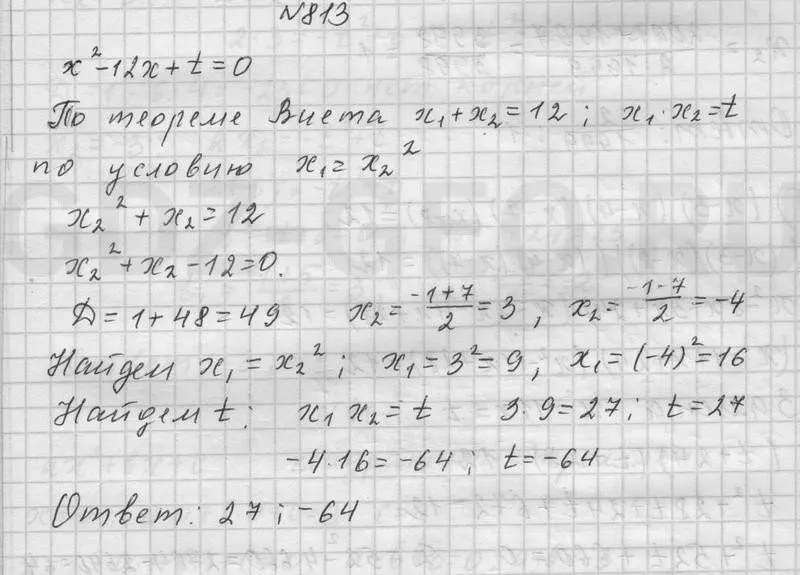 №813
x² - 12x + t = 0
По теореме Виета x₁ + x₂ = 12 ; x₁ · x₂ = t
по условию x₁ = x₂²
x₂² + x₂ = 12
x₂² + x₂ - 12 = 0.
Д = 1 + 48 = 49 x₂ = (-1+7)/2 = 3 , x₂ = (-1-7)/2 = -4
Найдем x₁ = x₂² ; x₁ = 3² = 9 , x₁ = (-4)² = 16
Найдем t : x₁ x₂ = t 3 · 9 = 27 ; t = 27
-4 · 16 = -64 ; t = -64
Ответ : 27 ; -64